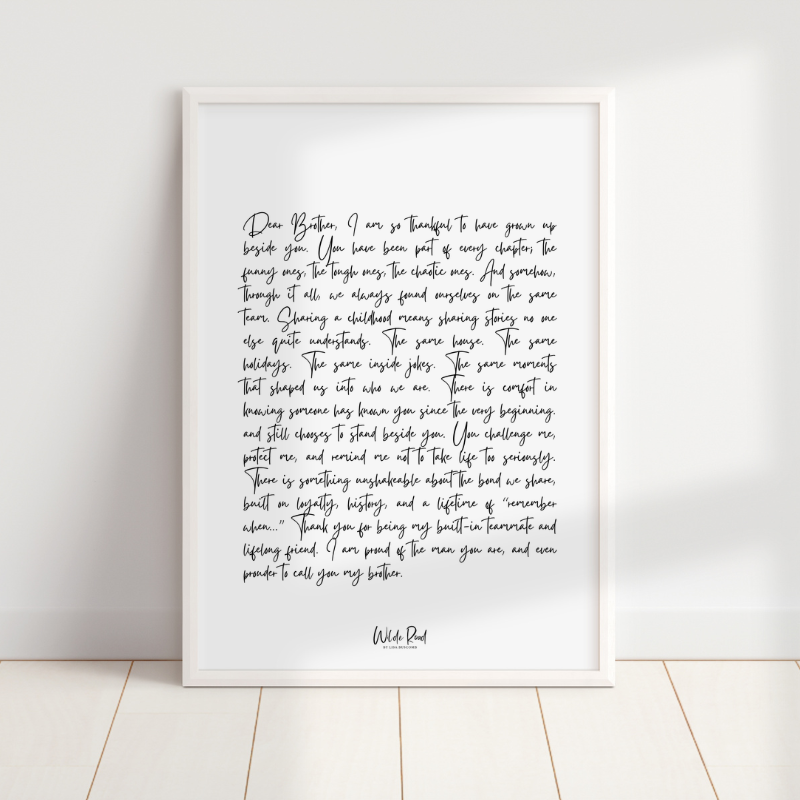 Dear Brother, I am so thankful to have grown up
beside you. You have been part of every chapter; the
funny ones, the tough ones, the chaotic ones. And somehow,
through it all, we always found ourselves on the same
team. Sharing a childhood means sharing stories no one
else quite understands. The same house. The same
holidays. The same inside jokes. The same moments
that shaped us into who we are. There is comfort in
knowing someone has known you since the very beginning,
and still chooses to stand beside you. You challenge me,
protect me, and remind me not to take life too seriously.
There is something unshakeable about the bond we share,
built on loyalty, history, and a lifetime of “remember
when...” Thank you for being my built-in teammate and
lifelong friend. I am proud of the man you are, and even
prouder to call you my brother.
Wilde Road